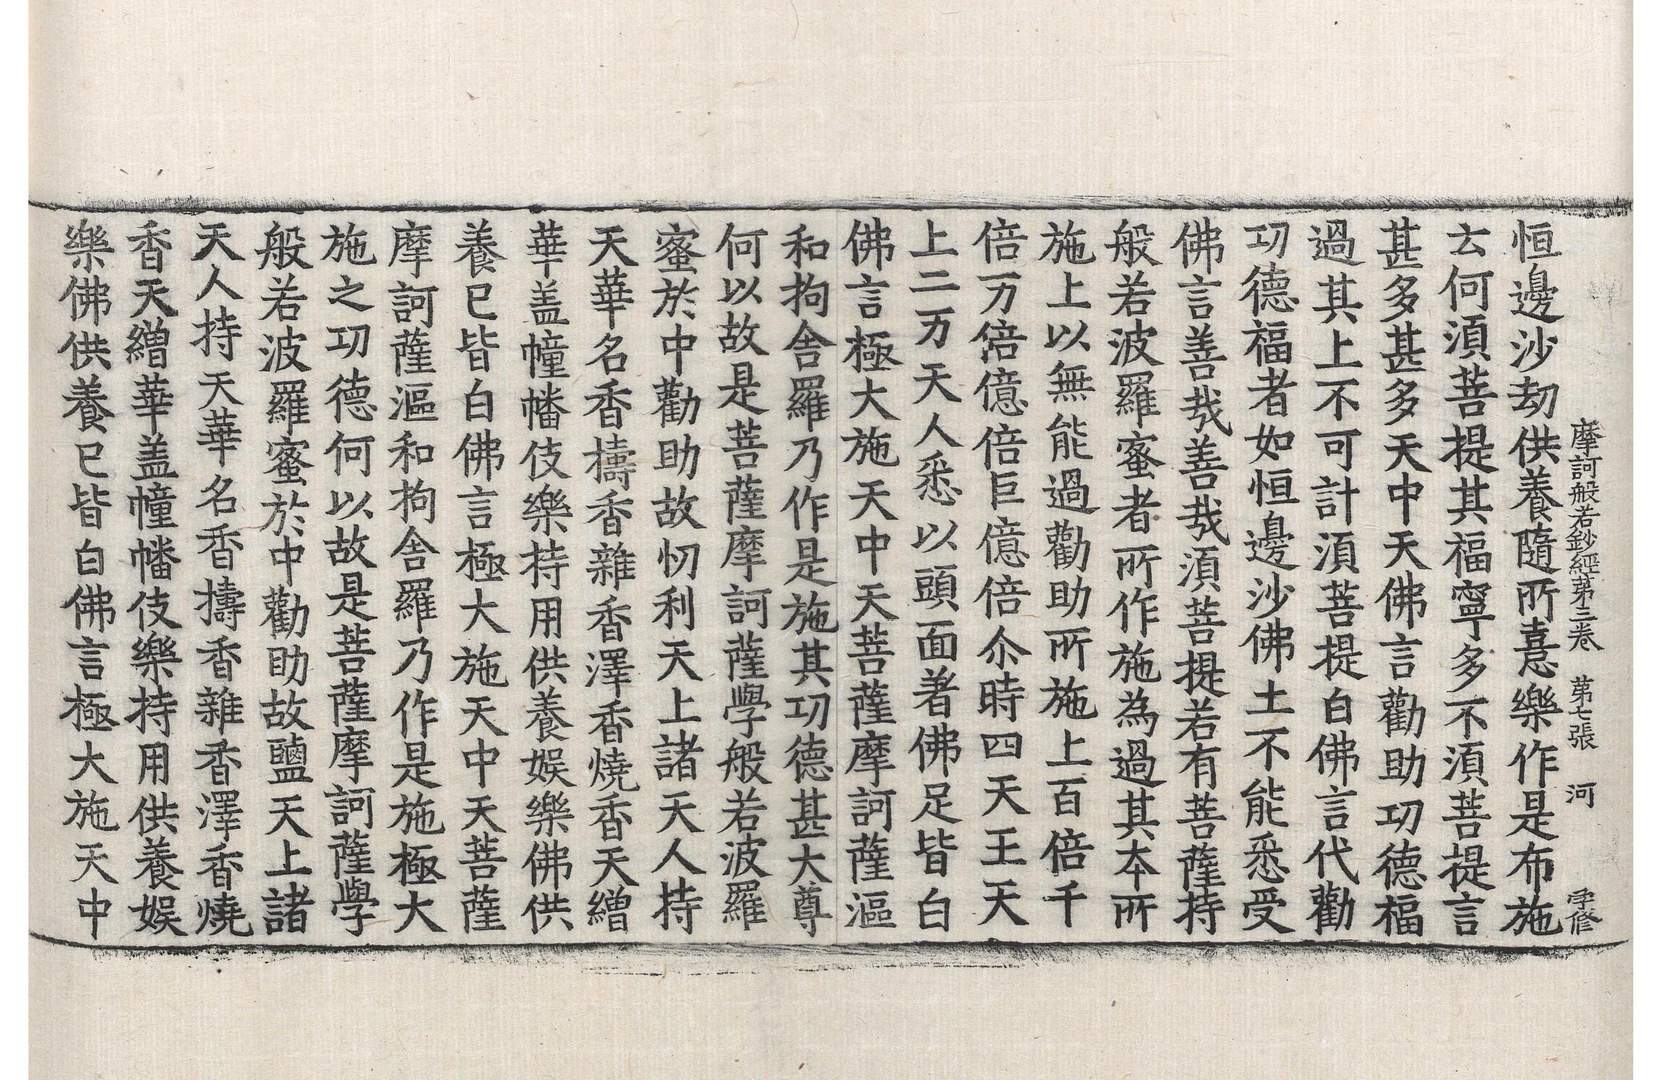 摩訶般若鈔經第三卷 第七張 河 学修
恒邊沙劫供養隨所憙樂作是布施
云何湏菩提其福寧多不湏菩提言
甚多甚多天中天佛言勸助功德福
過其上不可計湏菩提白佛言代勸
功德福者如恒邊沙佛土不能悉受
佛言善哉善哉湏菩提若有菩薩持
般若波羅蜜者所作施為過其本所
施上以無能過勸助所施上百倍千
倍万倍億倍巨億倍尒時四天王天
上二万天人悉以頭面著佛足皆白
佛言極大施天中天菩薩摩訶薩漚
和拘舍羅乃作是施其功德甚大尊
何以故是菩薩摩訶薩學般若波羅
蜜於中勸助故忉利天上諸天人持
天華名香擣香雜香澤香燒香天繒
華盖幢幡伎樂持用供養娛樂佛供
養已皆白佛言極大施天中天菩薩
摩訶薩漚和拘舍羅乃作是施極大
施之功德何以故是菩薩摩訶薩學
般若波羅蜜於中勸助故鹽天上諸
天人持天華名香擣香雜香澤香燒
香天繒華盖幢幡伎樂持用供養娛
樂佛供養已皆白佛言極大施天中